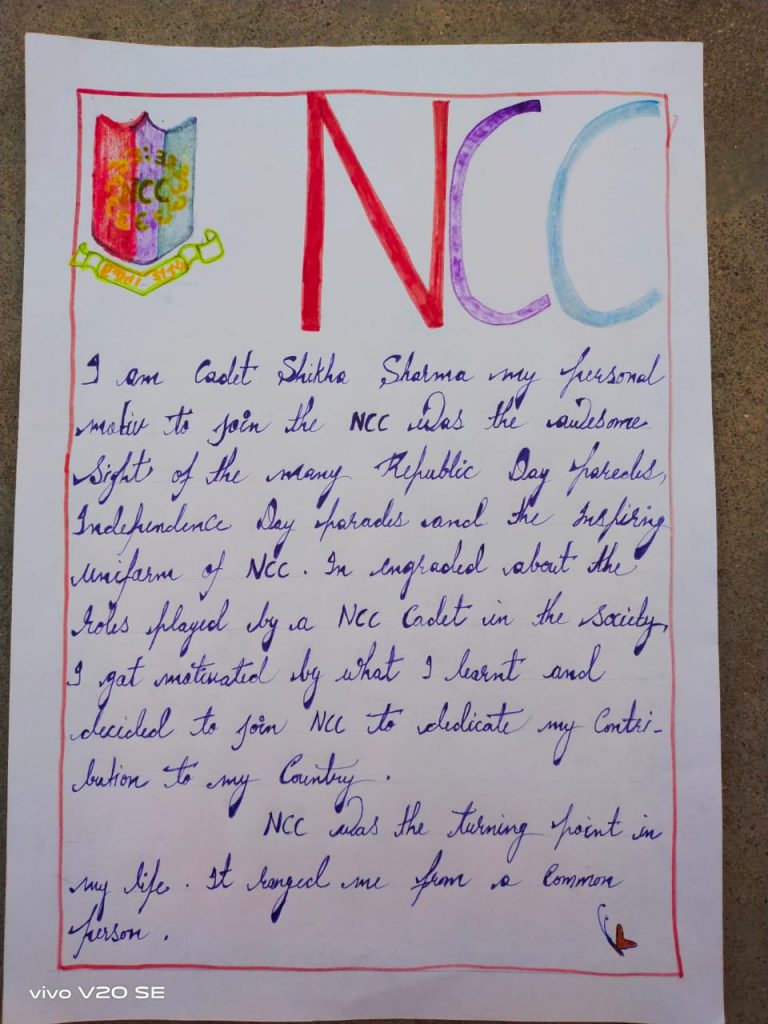 NCC
NCC
I am Cadet Shikha Sharma my personal
motiv to join the NCC was the awesome
sight of the many Republic Day paredes,
Independence Day parades and the Inspiring
unifarm of NCC. In engraded about the
roles played by a NCC Cadet in the society,
I got motivated by what I learnt and
decided to join NCC to dedicate my Contri-
bution to my Country.
NCC was the turning point in
my life. It ranged me from a Common
person.
vivo V20 SE